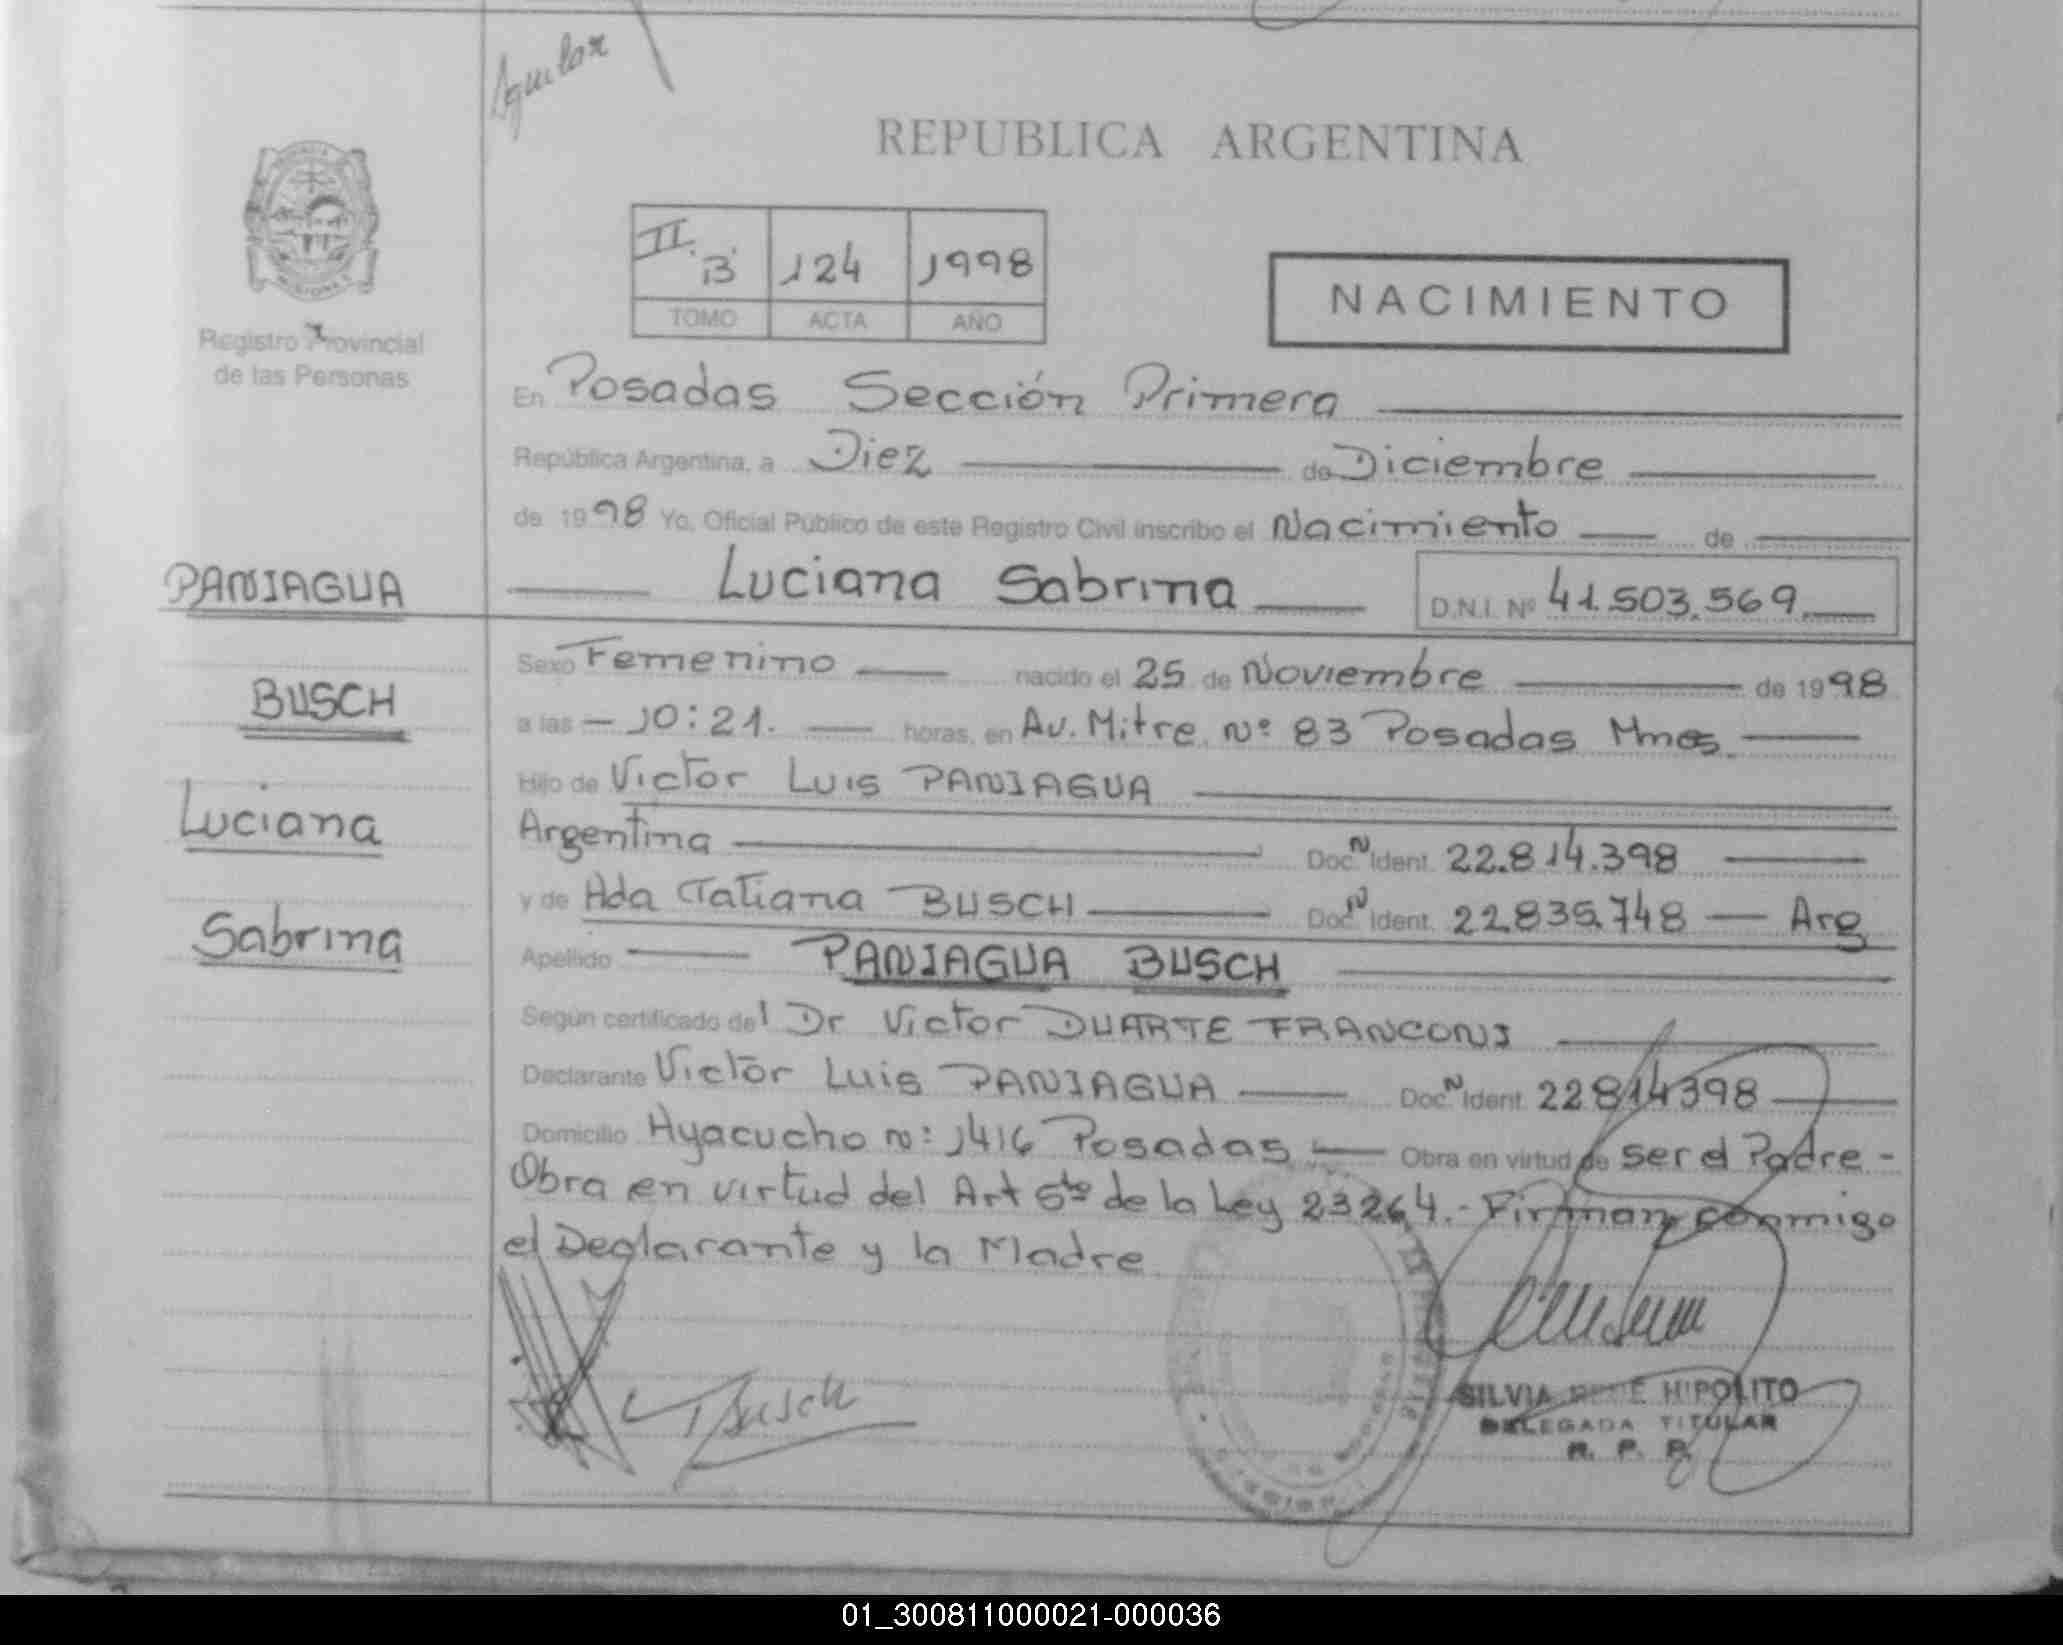 Aguilar
REPUBLICA ARGENTINA
II. B 124 1998
TOMO ACTA AÑO
NACIMIENTO
Registro Provincial
de las Personas
En Posadas Sección Primera
República Argentina, a Diez de Diciembre
de 1998 Yo, Oficial Público de este Registro Civil inscribo el Nacimiento de
PANIAGUA
Luciana Sabrina D.N.I. Nº 41.503.569
Sexo Femenino nacido el 25 de Noviembre de 1998
BUSCH
a las 10:21. horas, en Av. Mitre Nº 83 Posadas Mnes.
Hijo de Victor Luis PANIAGUA
Luciana
Argentina Doc. N Ident. 22.814.398
y de Ada Tatiana BUSCH Doc. N Ident. 22.835.748 Arg
Sabrina
Apellido PANIAGUA BUSCH
Según certificado del Dr Victor DUARTE FRANCONI
Declarante Victor Luis PANIAGUA Doc. N Ident. 22814398
Domicilio Ayacucho Nº: 1416 Posadas Obra en virtud de ser el Padre -
Obra en virtud del Art 5to de la Ley 23264.- Firman conmigo
el Declarante y la Madre
TBusch
SILVIA RENE HIPOLITO
DELEGADA TITULAR
R. P. P.
01_300811000021-000036